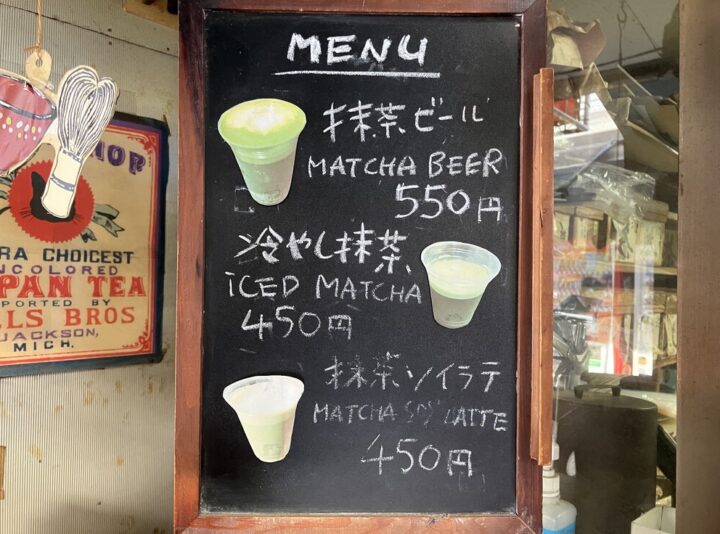 MENU
抹茶ビール
MATCHA BEER
550円
冷やし抹茶
ICED MATCHA
450円
抹茶ソイラテ
MATCHA SOY LATTE
450円
RA CHOICEST
NCOLORED
PAN TEA
PORTED BY
LLS BROS
JACKSON,
MICH.